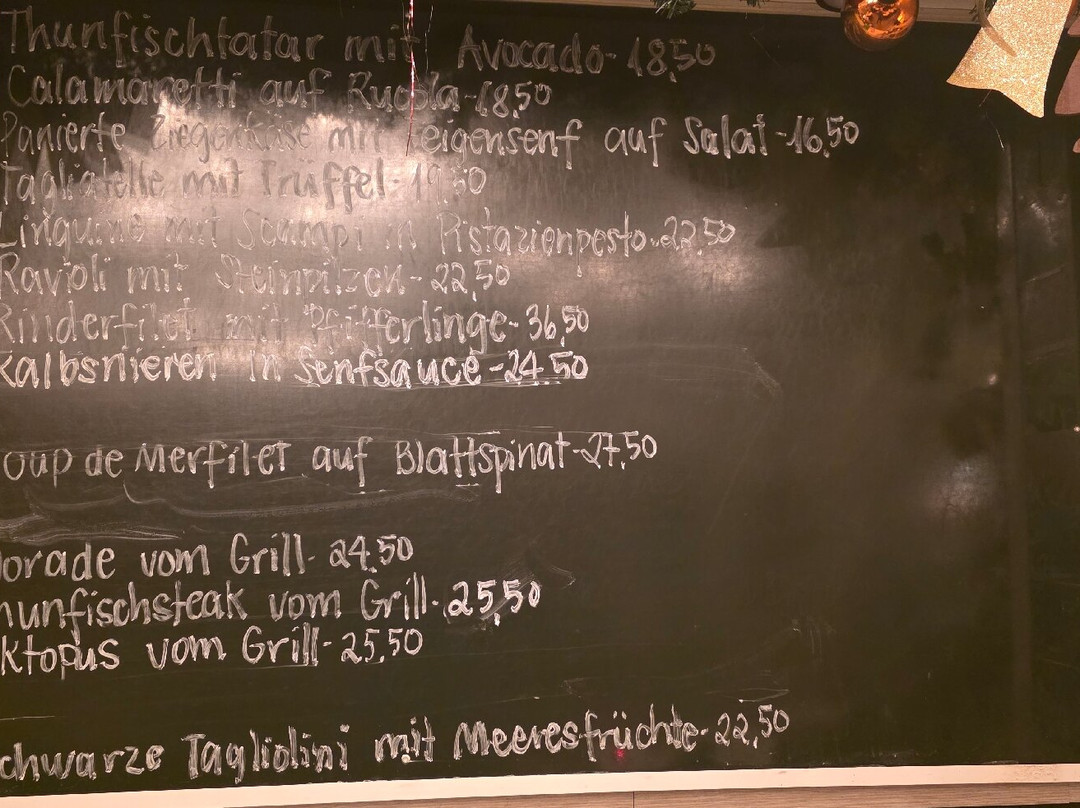 Thunfischtatar mit Avocado- 18,50
Calamaretti auf Rucola-18,50
Panierte Ziegenkäse mit Feigensenf auf Salat-16,50
Tagliatelle mit Trüffel-19,50
Linguine mit Scampi in Pistazienpesto-22,50
Ravioli mit Steinpilzen-22,50
Rinderfilet mit Pfifferlinge-36,50
Kalbsnieren in Senfsauce-24.50
oup de Merfilet auf Blattspinat-27,50
orade vom Grill-24.50
hunfischsteak vom Grill-25,50
ktopus vom Grill-25.50
chwarze Tagliolini mit Meeresfrüchte-22,50